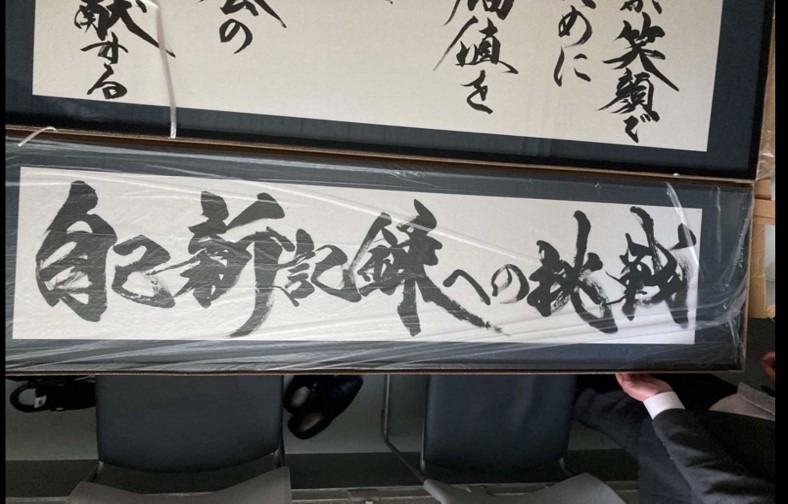 笑顔で
めに
値を
の
献する
自己新記録への挑戦